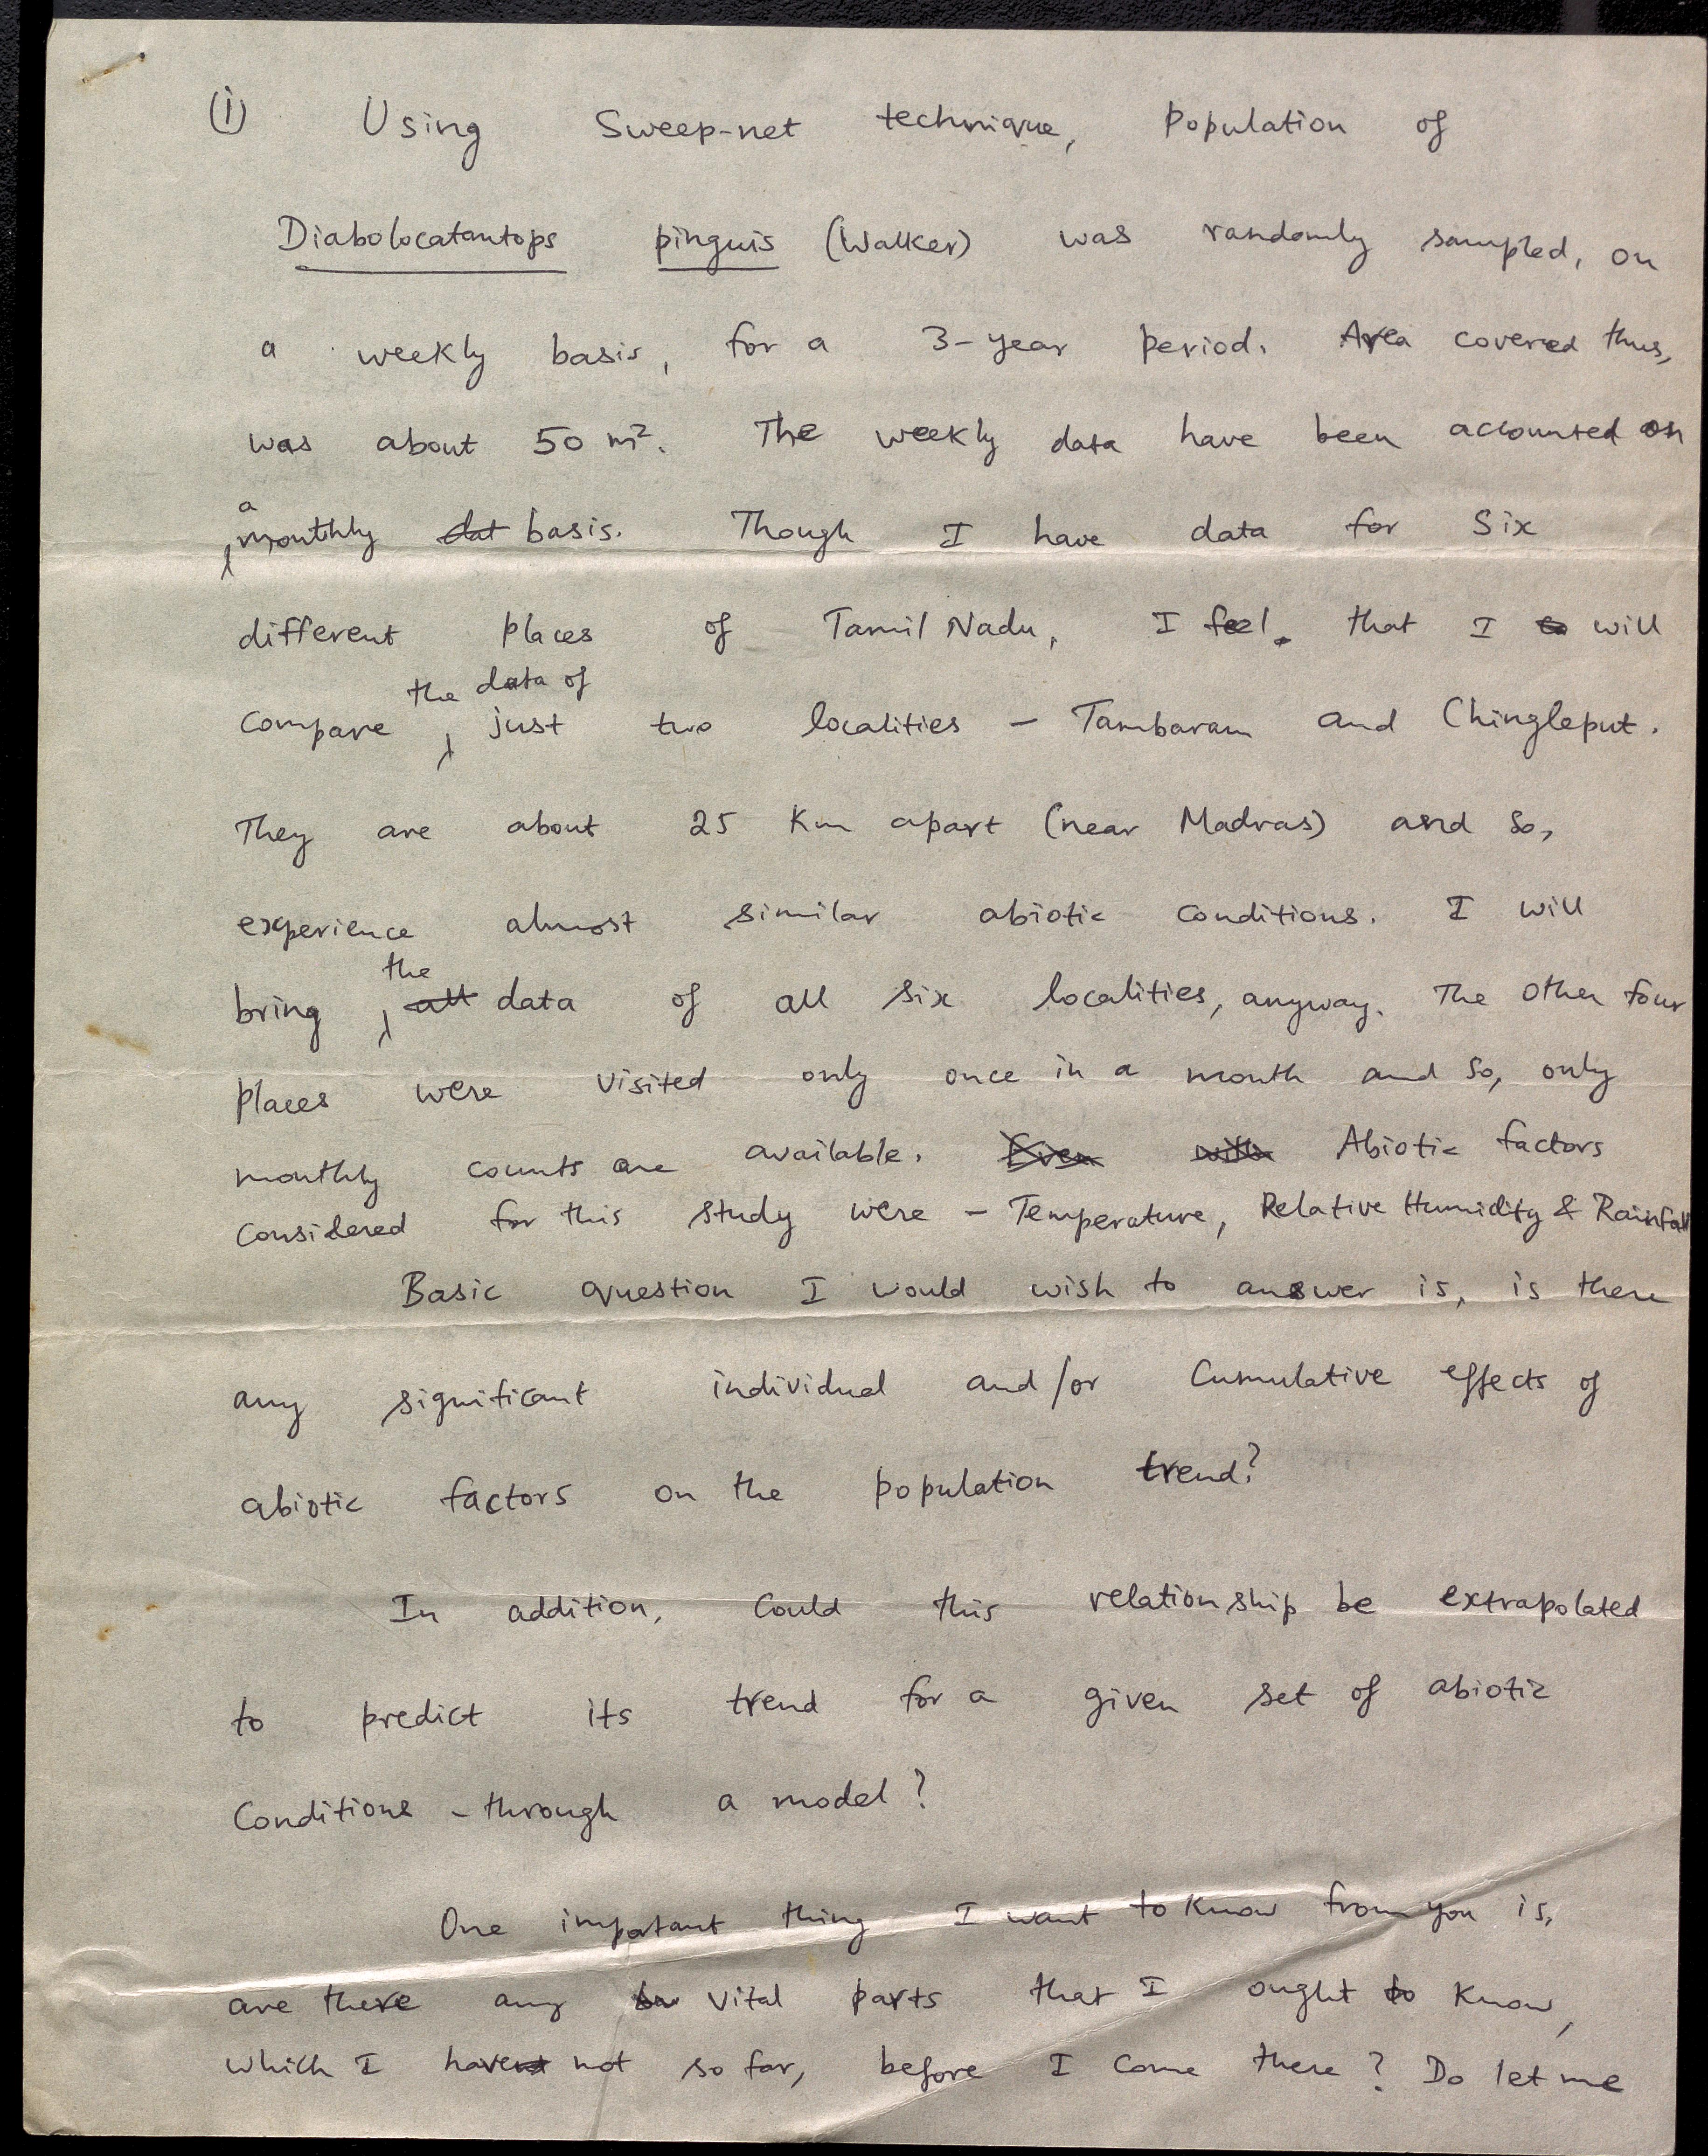 (i) Using Sweep-net technique, Population of
Diabolocatantops pinguis (Walker) was randomly sampled, on
a weekly basis, for a 3-year period. Area covered thus,
was about 50 m². The weekly data have been accounted on
a
monthly dat basis. Though I have data for Six
different places of Tamil Nadu, I feel, that I will
the data of
compare just two localities - Tambaram and Chingleput.
They are about 25 Km apart (near Madras) and so,
experience almost similar abiotic conditions. I will
the
bring all data of all six localities, anyway. The other four
places were visited only once in a month and so, only
monthly counts are available. Even with Abiotic factors
considered for this study were - Temperature, Relative Humidity & Rainfall
Basic question I would wish to answer is, is there
any significant individual and/or cumulative effects of
abiotic factors on the population trend?
In addition, could this relationship be extrapolated
to predict its trend for a given set of abiotic
conditions - through a model?
One important thing I want to know from you is,
are there any vital parts that I ought to know,
which I have not so far, before I come there? Do let me